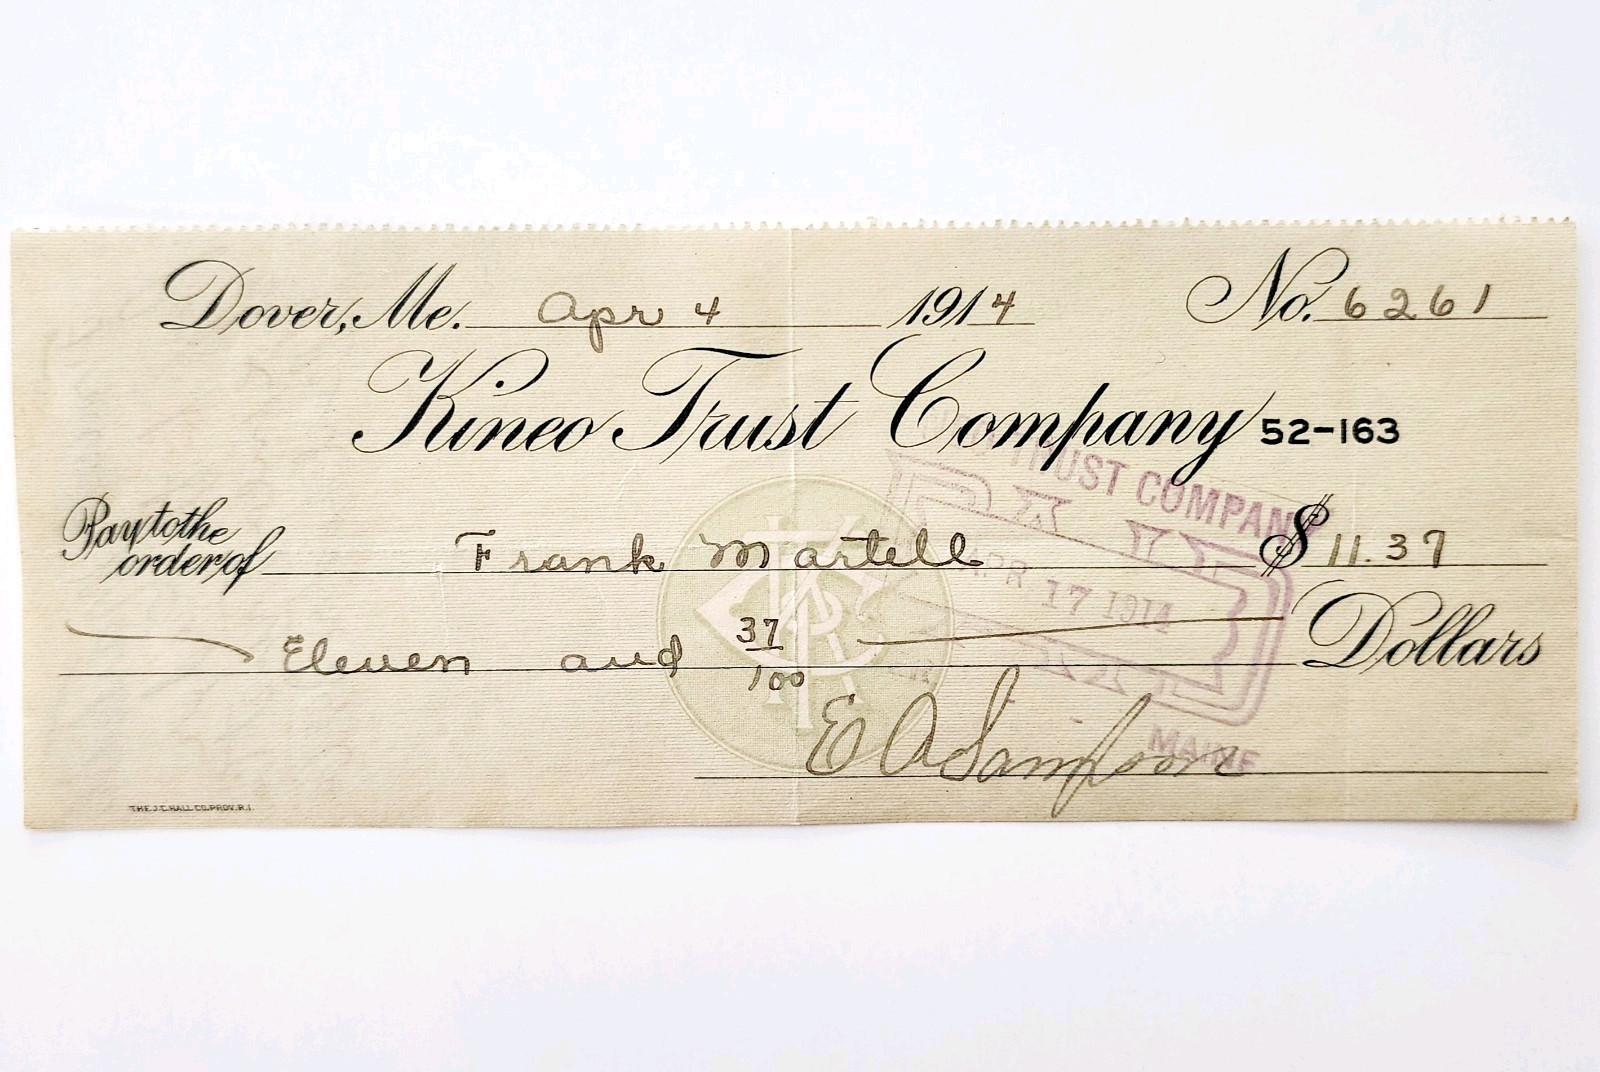 Dover, Me. Apr 4 1914 No. 6261
Kineo Trust Company 52-163
TRUST COMPANY
Pay to the order of Frank Martell $ 11.37
APR 17 1914
PAID
Eleven and 37/100 Dollars
E A Sampson
MAINE
THE J.C. HALL CO. PROV. R.I.